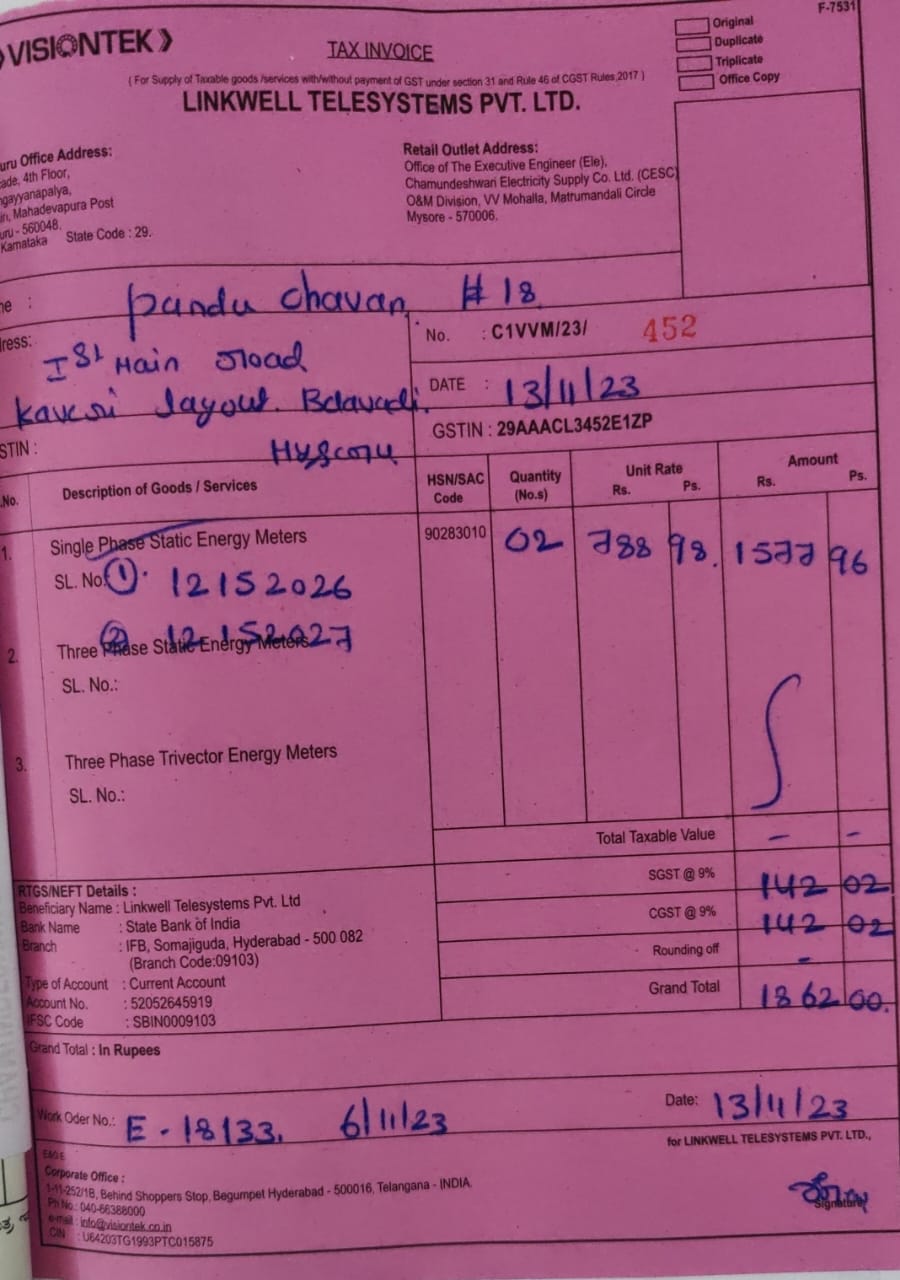 VISIONTEK
F-7531
TAX INVOICE
Original
Duplicate
Triplicate
Office Copy
( For Supply of Taxable goods /services with/without payment of GST under section 31 and Rule 46 of CGST Rules,2017 )
LINKWELL TELESYSTEMS PVT. LTD.
uru Office Address:
ade, 4th Floor,
ngayyanapalya,
in, Mahadevapura Post
uru - 560048.
Karnataka State Code : 29.
Retail Outlet Address:
Office of The Executive Engineer (Ele),
Chamundeshwari Electricity Supply Co. Ltd. (CESC)
O&M Division, VV Mohalla, Matrumandali Circle
Mysore - 570006.
me : Pandu Chavan # 18
ress: Ist Main Road
Kaveri layout. Belavadi.
STIN : Mysore
No. : C1VVM/23/ 452
DATE : 13/11/23
GSTIN : 29AAACL3452E1ZP
No. Description of Goods / Services HSN/SAC Code Quantity (No.s) Unit Rate Rs. Ps. Amount Rs. Ps.
1. Single Phase Static Energy Meters 90283010 02 788 98. 1577 96
SL. No. ① 12152026
② 12152027
2. Three Phase Static Energy Meters
SL. No.:
3. Three Phase Trivector Energy Meters
SL. No.:
Total Taxable Value - -
SGST @ 9% 142 02
CGST @ 9% 142 02
Rounding off -
Grand Total 1862 00.
RTGS/NEFT Details :
Beneficiary Name : Linkwell Telesystems Pvt. Ltd
Bank Name : State Bank of India
Branch : IFB, Somajiguda, Hyderabad - 500 082
(Branch Code:09103)
Type of Account : Current Account
Account No. : 52052645919
IFSC Code : SBIN0009103
Grand Total : In Rupees
Work Oder No.: E - 18133. 6/11/23
Date: 13/11/23
for LINKWELL TELESYSTEMS PVT. LTD.,
E&OE
Corporate Office :
1-11-252/1B, Behind Shoppers Stop, Begumpet Hyderabad - 500016, Telangana - INDIA.
Ph No.: 040-66388000
e-mail : info@visiontek.co.in
CIN : U64203TG1993PTC015875
Signatory